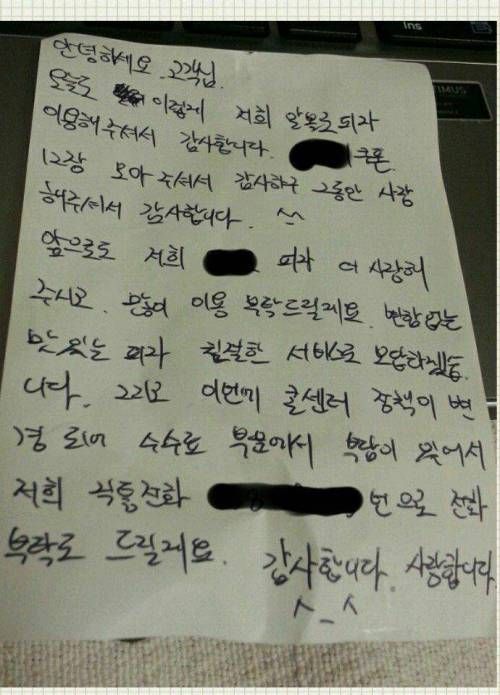 안녕하세요. 고객님.
오늘도 이렇게 저희 알볼로피자
이용해주셔서 감사합니다. 쿠폰
12장 모아주셔서 감사하구 그동안 사랑
해주셔서 감사합니다. ^^
앞으로도 저희 피자 더 사랑해
주시고. 많이 이용 부탁드릴게요. 변함없는
맛있는 피자 친절한 서비스로 보답하겠습
니다. 그리고 이번에 콜센터 정책이 변
경 되어 수수료 부분에서 부담이 있어서
저희 직통전화 번으로 전화
부탁도 드릴게요. 감사합니다. 사랑합니다.
^_^
Ins
TIMUS